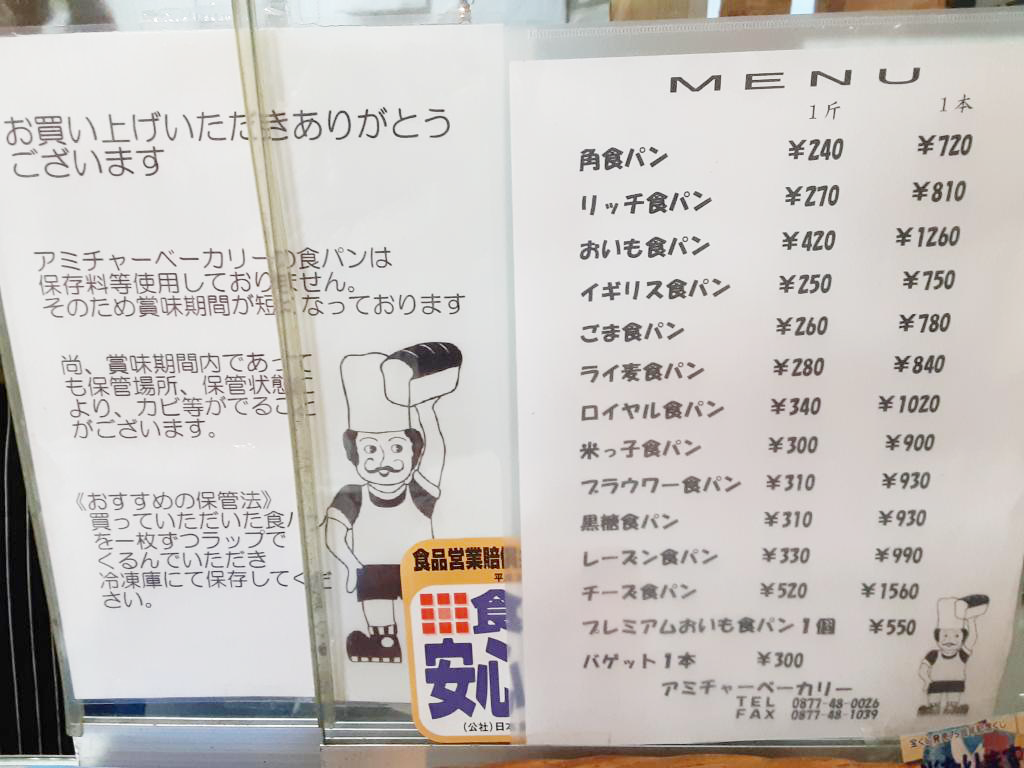 お買い上げいただきありがとう
ございます
アミチャーベーカリーの食パンは
保存料等使用しておりません。
そのため賞味期間が短くなっております
尚、賞味期間内であって
も保管場所、保管状態に
より、カビ等がでること
がございます。
《おすすめの保管法》
買っていただいた食パ
を一枚ずつラップで
くるんでいただき
冷凍庫にて保存してくだ
さい。
食品営業賠償
平
食
安心
(公社)日本
MENU
1斤 1本
角食パン ¥240 ¥720
リッチ食パン ¥270 ¥810
おいも食パン ¥420 ¥1260
イギリス食パン ¥250 ¥750
ごま食パン ¥260 ¥780
ライ麦食パン ¥280 ¥840
ロイヤル食パン ¥340 ¥1020
米っ子食パン ¥300 ¥900
ブラウワー食パン ¥310 ¥930
黒糖食パン ¥310 ¥930
レーズン食パン ¥330 ¥990
チーズ食パン ¥520 ¥1560
プレミアムおいも食パン1個 ¥550
バゲット1本 ¥300
アミチャーベーカリー
TEL 0877-48-0026
FAX 0877-48-1039